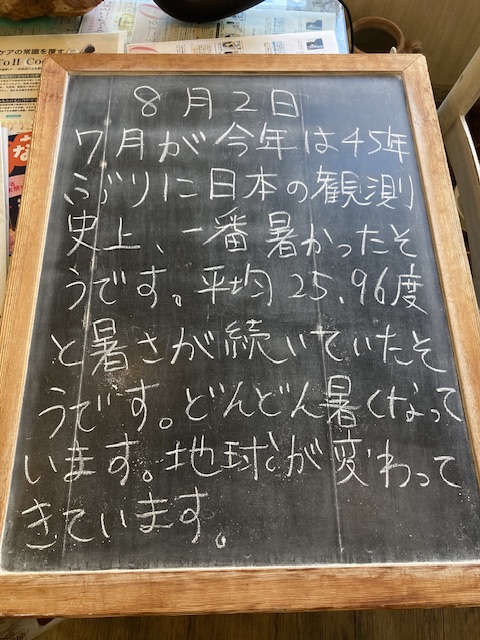 ケアの常識を覆す
8月2日
7月が今年は45年
ぶりに日本の観測
史上、一番暑かったそ
うです。平均25.96度
と暑さが続いていたそ
うです。どんどん暑くなって
います。地球が変わって
きています。